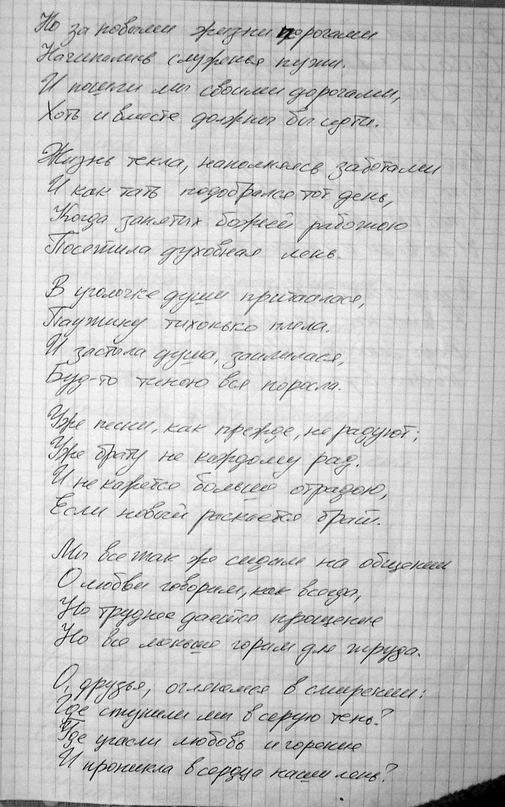 Но за новыми жизни порогами
Начинались служенья пути.
И пошли мы своими дорогами,
Хоть и вместе должны бы идти.
Жизнь текла, наполняясь заботами
И как тать подобрался тот день,
Когда занятых божьей работою
Посетила духовная лень.
В уголочке души притаилася,
Паутинку тихонько плела.
И застыла душа, заилилася,
Буд-то тиною вся поросла.
Уже песни, как прежде, не радуют;
Уже брату не каждому рад.
И не кажется больше отрадою,
Если новый раскается брат.
Мы все так же сидим на общении
О любви говорим, как всегда,
Но труднее даётся прощение
Но все меньше горим для труда.
О, друзья, оглянемся в смирении:
Где ступили мы в серую тень?
Где угасли любовь и горение
И проникла в сердца наши лень?